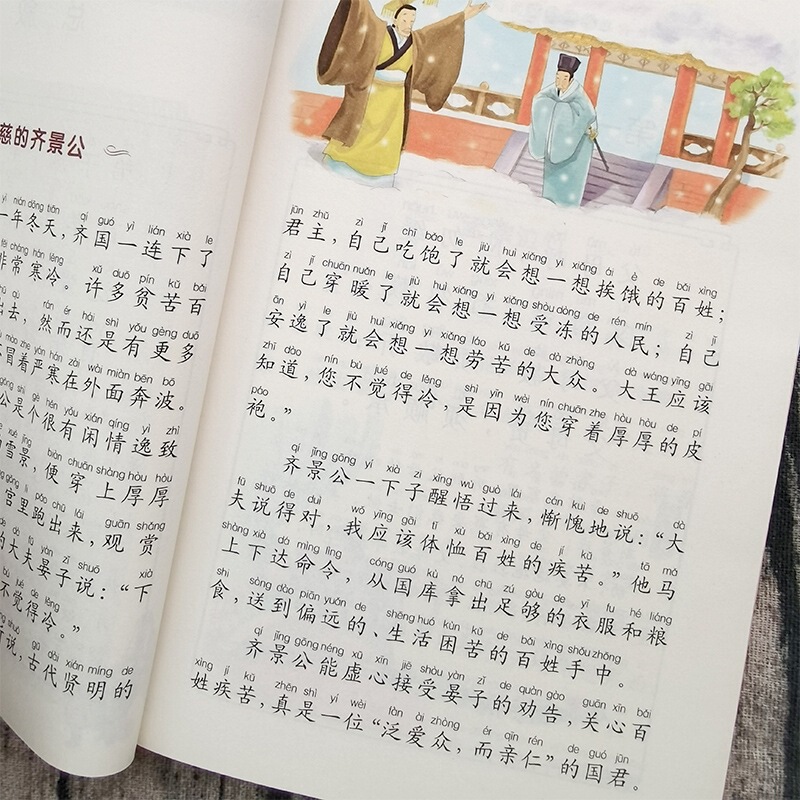 慈的齐景公
yì nián dōng tiān qí guó yì lián xià le
一年冬天，齐国一连下了
fēi cháng hán lěng xǔ duō pín kǔ bǎi
非常寒冷。许多贫苦百
chū qù rán ér hái shì yǒu gèng duō
出去，然而还是有更多
mào zhe yán hán zài wài miàn bēn bō
冒着严寒在外面奔波。
gōng shì gè hěn yǒu xián qíng yì zhì
公是个很有闲情逸致
xuě jǐng biàn chuān shàng hòu hòu
雪景，便穿上厚厚
gōng lǐ pǎo chū lái guān shǎng
宫里跑出来，观赏
de dà fū yàn zǐ shuō xià
的大夫晏子说：“下
bù jué de lěng
不觉得冷。”
shuō gǔ dài xián míng de
说，古代贤明的
jūn zhǔ zì jǐ chī bǎo le jiù huì xiǎng yi xiǎng ái è de bǎi xìng
君主，自己吃饱了就会想一想挨饿的百姓；
zì jǐ chuān nuǎn le jiù huì xiǎng yi xiǎng shòu dòng de rén mín zì jǐ
自己穿暖了就会想一想受冻的人民；自己
ān yì le jiù huì xiǎng yi xiǎng láo kǔ de dà zhòng dà wáng yīng gāi
安逸了就会想一想劳苦的大众。大王应该
zhī dào nín bù jué de lěng shì yīn wèi nín chuān zhe hòu hòu de pí
知道，您不觉得冷，是因为您穿着厚厚的皮
páo
袍。”
qí jǐng gōng yí xià zi xǐng wù guò lái cán kuì de shuō dà
齐景公一下子醒悟过来，惭愧地说：“大
fū shuō de duì wǒ yīng gāi tǐ xù bǎi xìng de jí kǔ tā mǎ
夫说得对，我应该体恤百姓的疾苦。”他马
shàng xià dá mìng lìng cóng guó kù ná chū zú gòu de yī fu hé liáng
上下达命令，从国库拿出足够的衣服和粮
shi sòng dào piān yuǎn de shēng huó kùn kǔ de bǎi xìng shǒu zhōng
食，送到偏远的、生活困苦的百姓手中。
qí jǐng gōng néng xū xīn jiē shòu yàn zǐ de quàn gào guān xīn bǎi
齐景公能虚心接受晏子的劝告，关心百
xìng jí kǔ zhēn shì yí wèi fàn ài zhòng ér qīn rén de guó jūn
姓疾苦，真是一位“泛爱众，而亲仁”的国君。